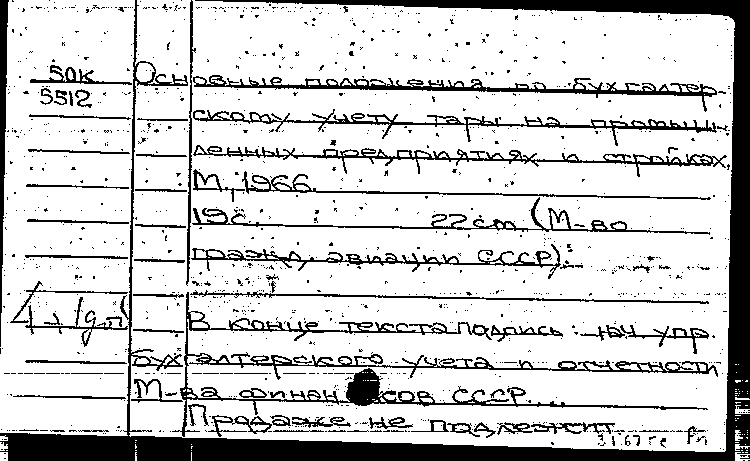 50К Основные положения по бухгалтер-
5512
скому учету тары на промыш-
ленных предприятиях и стройках.
М., 1966.
19с. 22 cm. (М-во
гражд. авиации СССР).
В конце текста подпись: нач. упр.
бухгалтерского учета и отчетности
М-ва финансов СССР....
Продаже не подлежит.